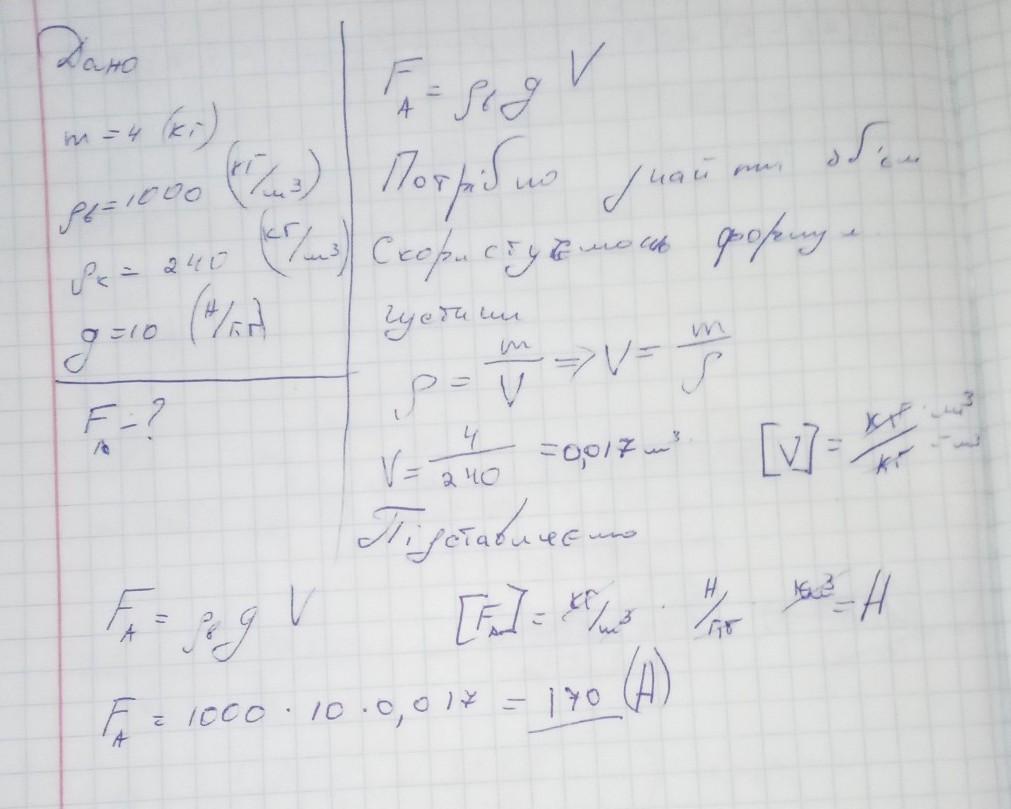 Дано
m = 4 (кг)
ρв = 1000 (кг/м3)
ρк = 240 (кг/м3)
g = 10 (Н/кг)
FА - ?
FА = ρв g V
Потрібно знайти об'єм
Скористуємось формул
густини
ρ = m/V => V = m/ρ
V = 4/240 = 0,017 м3 [V] = кг · м3/кг = м3
Підставляємо
FА = ρв g V [FА] = кг/м3 · Н/кг · м3 = Н
FА = 1000 · 10 · 0,017 = 170 (Н)